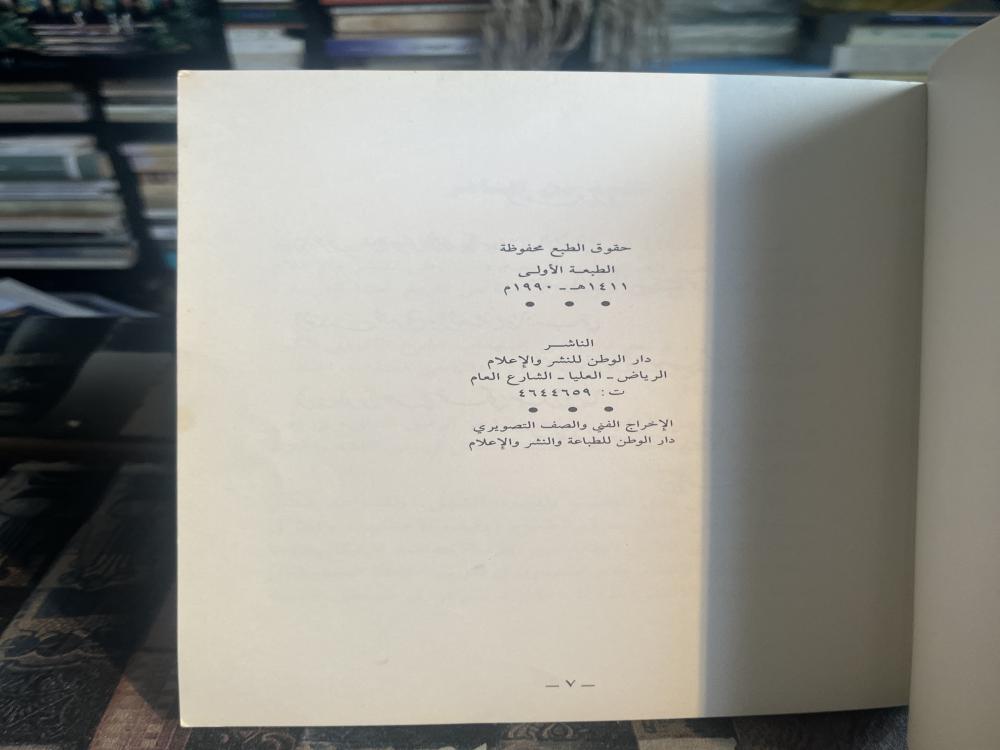 حقوق الطبع محفوظة
الطبعـة الأولـى
١٤١١هـ ـ ١٩٩٠م
● ● ●
الناشـــر
دار الوطن للنشر والإعلام
الرياض ـ العليا ـ الشارع العام
ت: ٤٦٤٤٦٥٩
● ● ●
الإخراج الفني والصف التصويري
دار الوطن للطباعة والنشر والإعلام
— ٧ —